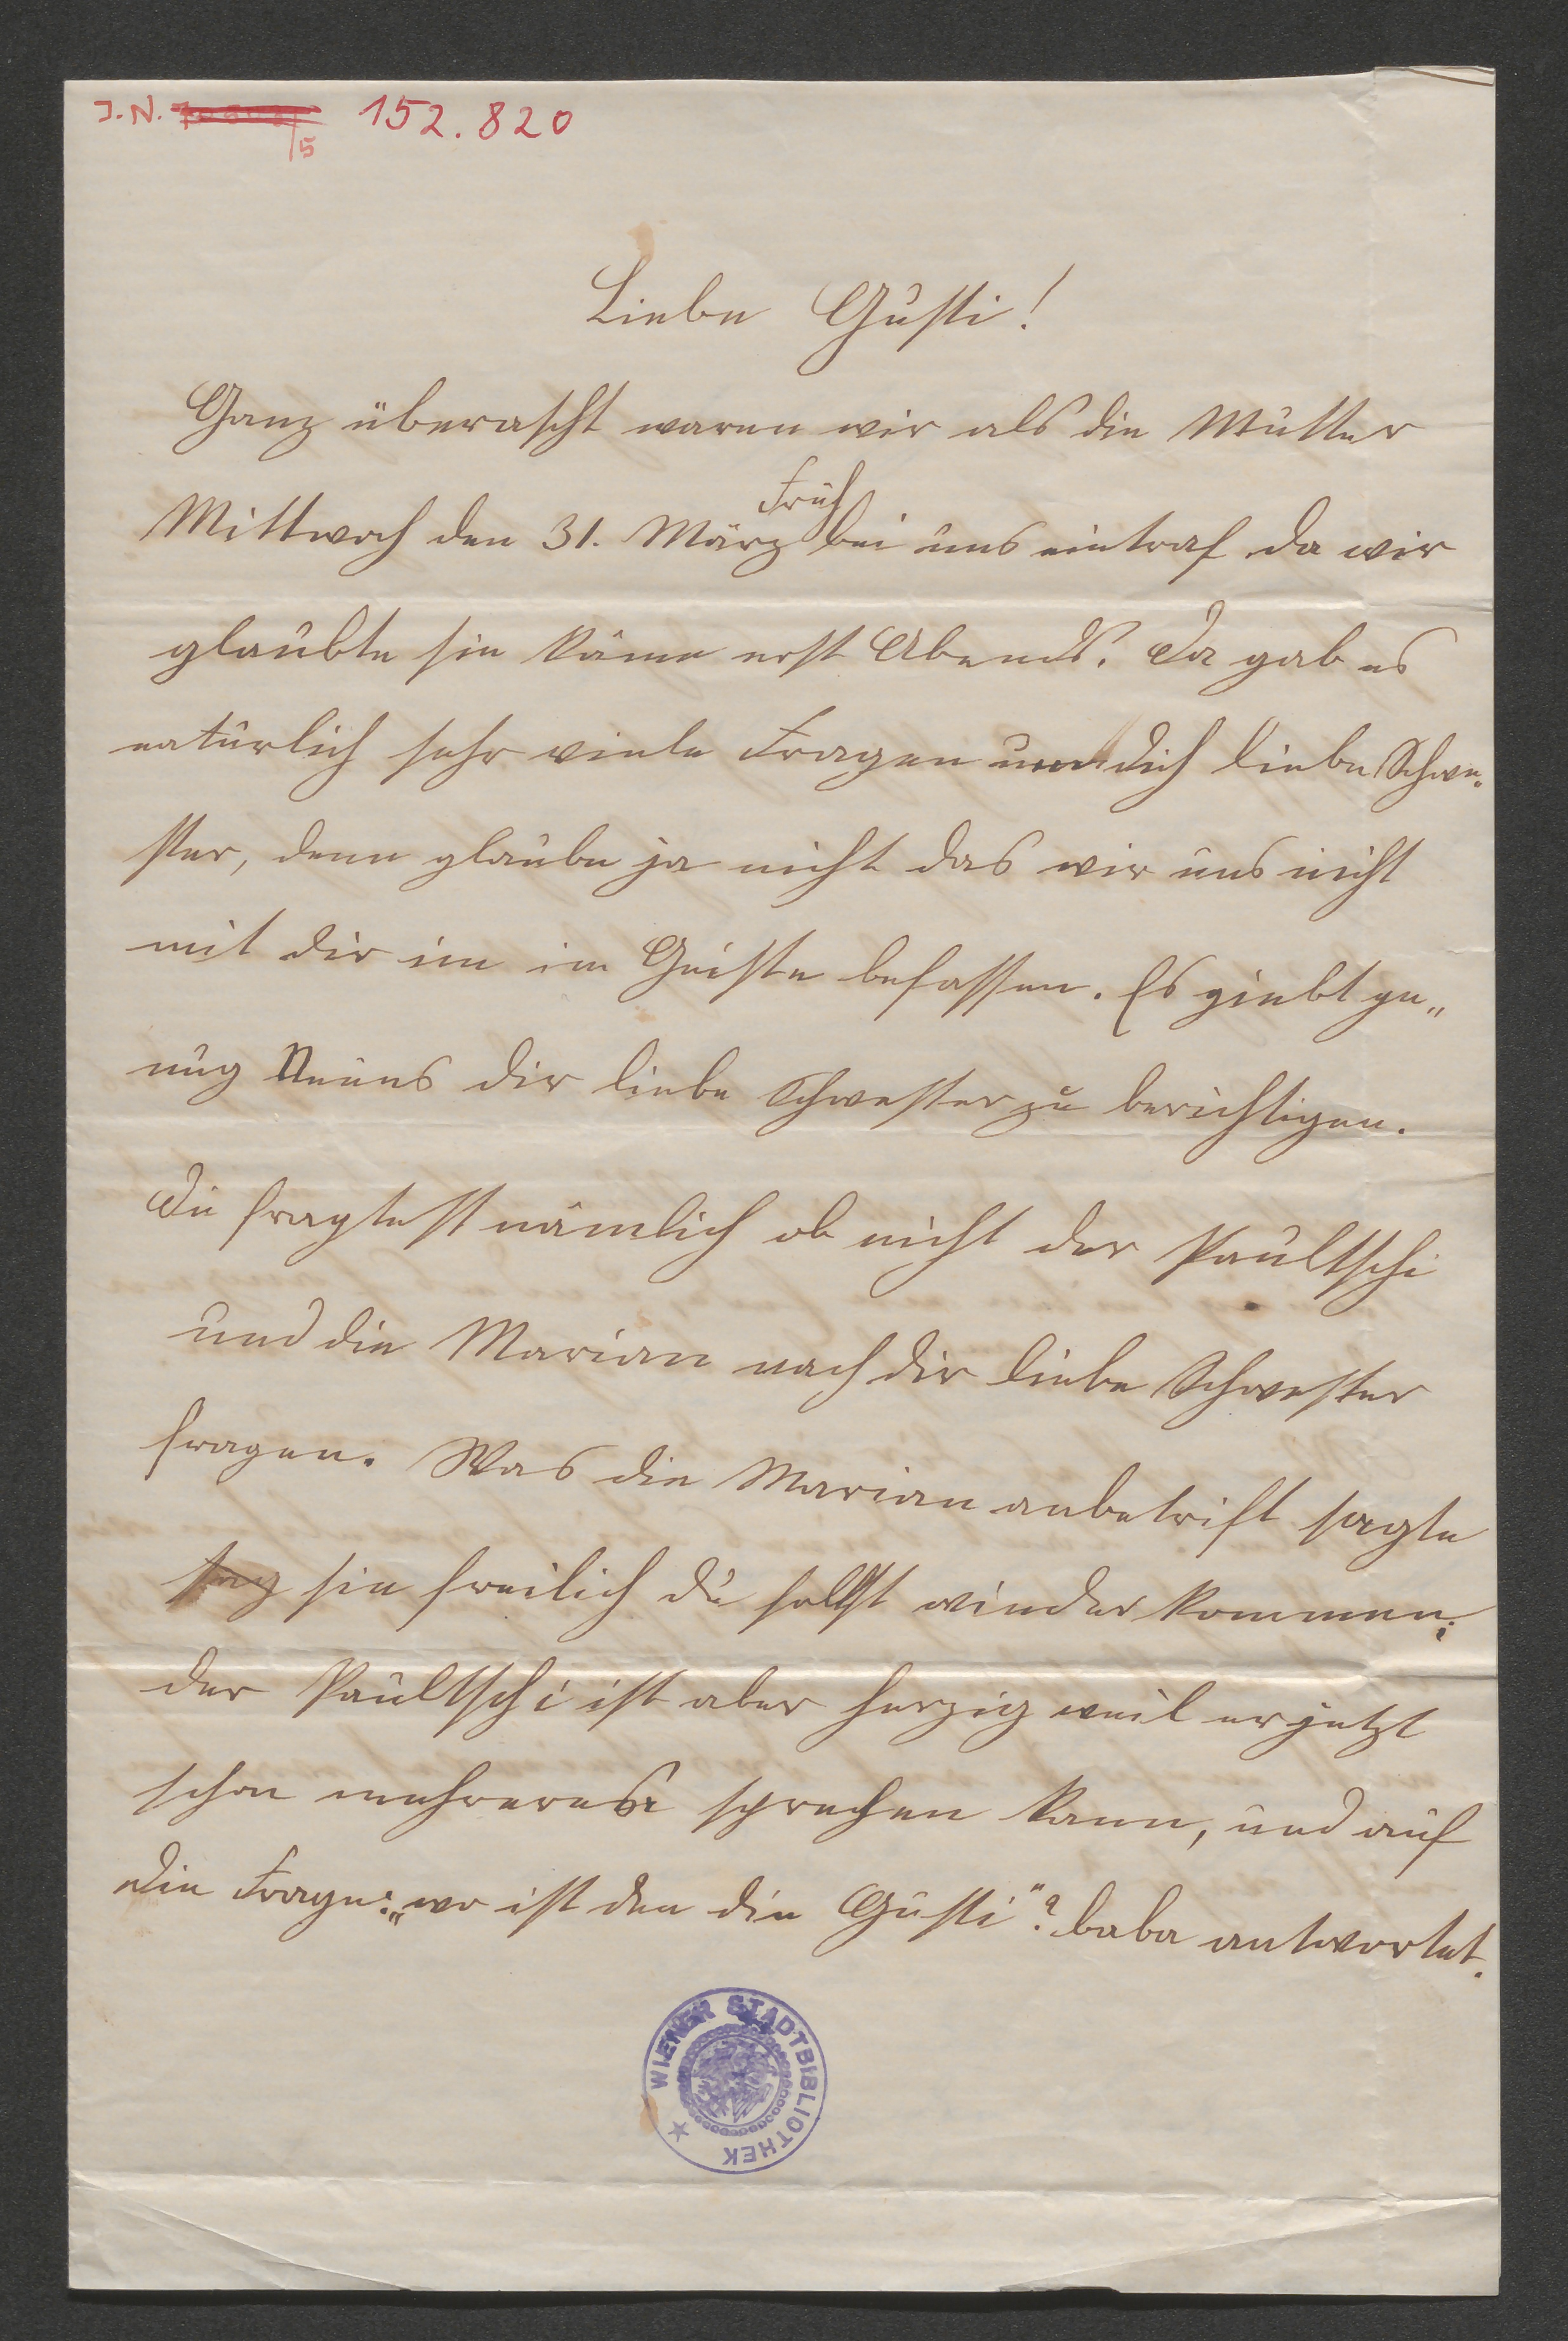 J.N. 152.820
/5
Liebe Gusti!
Ganz überascht waren wir als die Mutter
Früh
Mittwoch den 31. März bei uns eintraf da wir
glaubte sie käme erst Abends. Da gab es
natürlich sehr viele Fragen um dich liebe Schwe-
ster, denn glaube ja nicht das wir uns nicht
mit dir im im Geiste befassen. Es giebt ge„
nug Neues dir liebe Schwester zu berichtigen.
Du fragtest nämlich ob nicht der Paultschi
und die Marian nach dir liebe Schwester
fragen. Was die Marian anbetrift sagte
sag sie freilich du sollst wieder kommen;
der Paultschi ist aber herzig weil er jetzt
schon mehreres sprechen kann, und auf
die Frage: „wo ist den die Gusti"? baba antwortet.
WIENER STADTBIBLIOTHEK